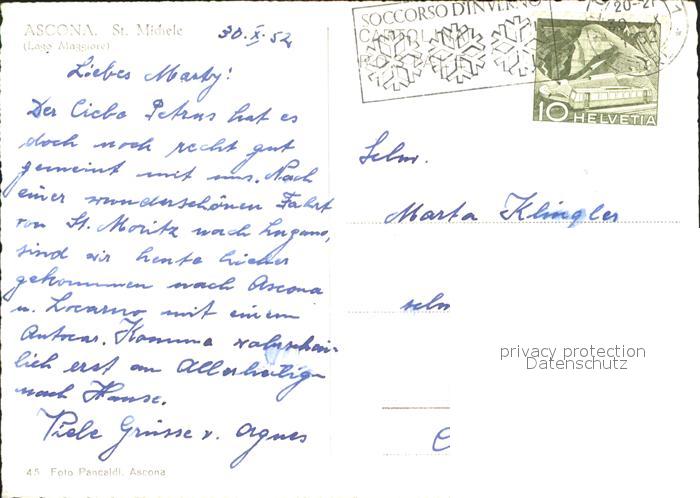 ASCONA. St. Michele
(Lago Maggiore)
30. X. 52
Liebes Marty!
Der liebe Petrus hat es
doch noch recht gut
gemeint mit uns. Nach
einer wunderschönen Fahrt
von St. Moritz nach Lugano,
sind wir heute hieher
gekommen nach Ascona
u. Locarno mit einem
Autocar. Komme wahrschein-
lich erst an Allerheilige
nach Hause.
Viele Grüsse v. Agnes
45 Foto Pancaldi, Ascona
SOCCORSO D'INVERNO
20-21
10 HELVETIA
Schw.
Marta Klingler
privacy protection
Datenschutz